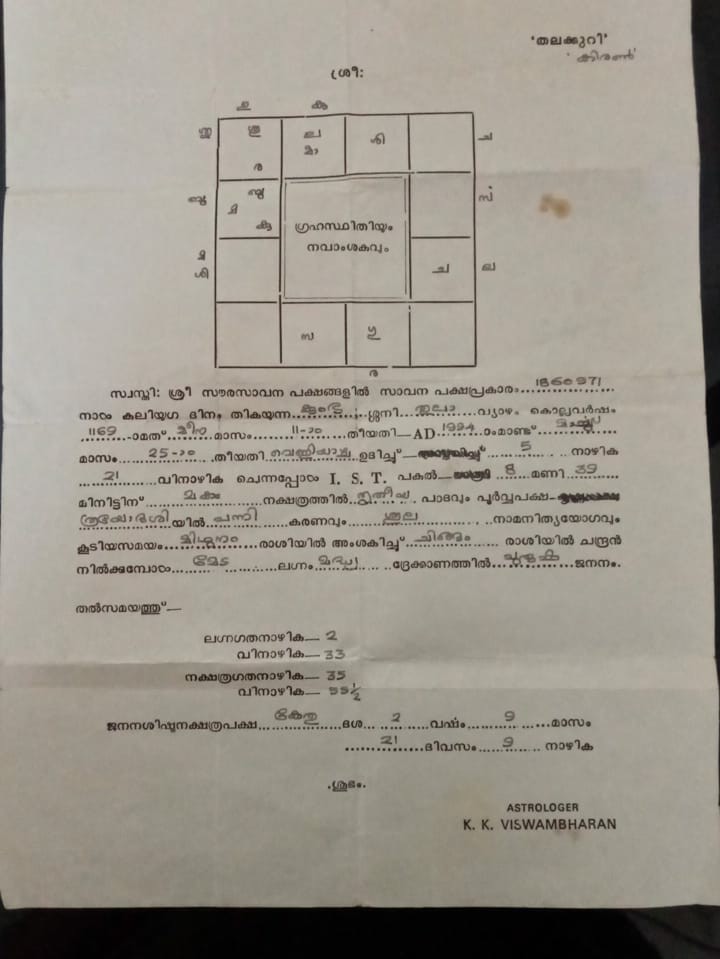 'തലക്കുറി'
'കിരൺ'
ശ്രീ:
ല
മാ
ശി
ച
ര
ഗ്രഹസ്ഥിതിയും
നവാംശകവും
ച
സ
ഗു
ര
സ്വസ്തി: ശ്രീ സൗരസാവന പക്ഷങ്ങളിൽ സാവന പക്ഷപ്രകാരം 1860971
നാഠം കലിയുഗ ദിനം തികയുന്ന കുംഭ ശ്ശനി തുലാ വ്യാഴം കൊല്ലവർഷം
1169 -ാമത് മീന മാസം 11-ാം തീയതി— AD 1994 ാംമാണ്ട് മാർച്ച്
മാസം 25-ാം തീയതി വെള്ളിയാഴ്ച ഉദിച്ച് 5 നാഴിക
21 വിനാഴിക ചെന്നപ്പോഠം I. S. T. പകൽ 8 മണി 39
മിനിട്ടിന് മകം നക്ഷത്രത്തിൽ തൃതീയ പാദവും പൂർവ്വപക്ഷ
ത്രയോദശിയിൽ പന്നി കരണവും ശൂല നാമനിത്യയോഗവും
കൂടിയസമയം മിഥുനം രാശിയിൽ അംശകിച്ച് ചിങ്ങം രാശിയിൽ ചന്ദ്രൻ
നിൽക്കുമ്പോഠം മേട ലഗ്നം മദ്ധ്യ ദ്രേക്കാണത്തിൽ ജനനം.
തൽസമയത്തു്—
ലഗ്നഗതനാഴിക— 2
വിനാഴിക— 33
നക്ഷത്രഗതനാഴിക— 35
വിനാഴിക— 55½
ജനനശിഷ്ടനക്ഷത്രപക്ഷ കേതു ദശ 2 വർഷം 9 മാസം
21 ദിവസം 9 നാഴിക
.ശുഭം.
ASTROLOGER
K. K. VISWAMBHARAN